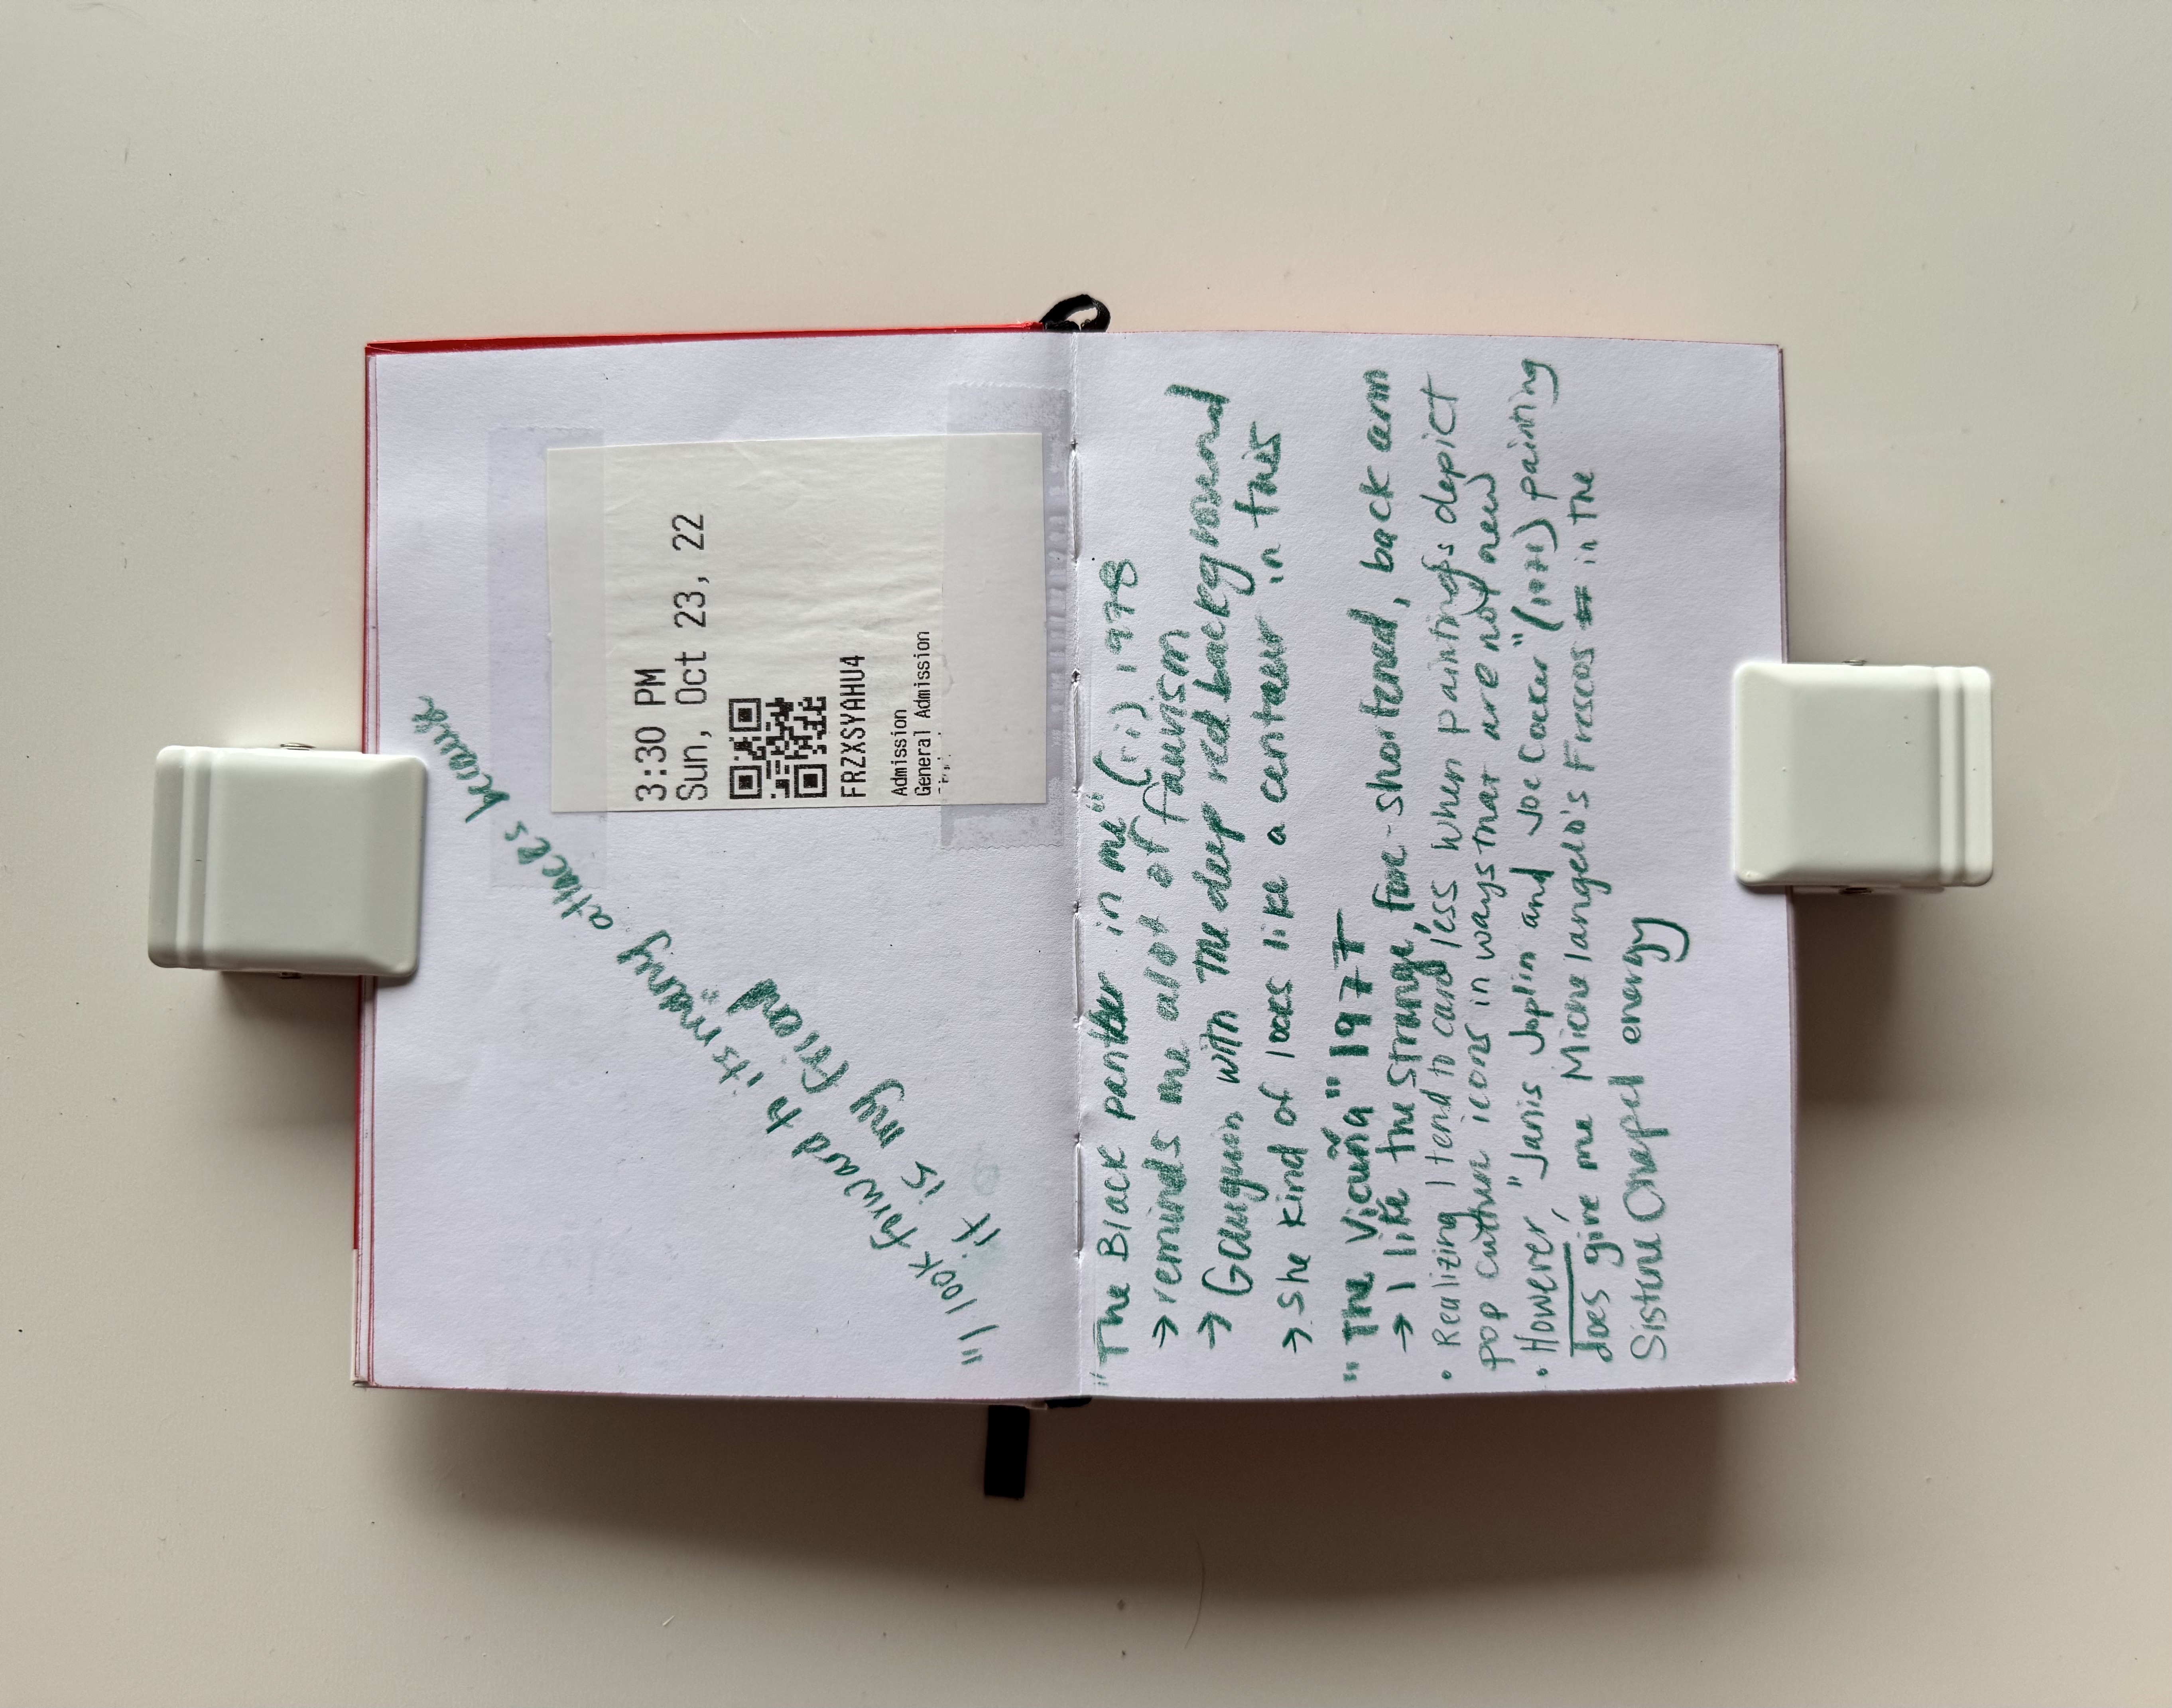 3:30 PM
Sun, Oct 23, 22
FRZXSYAHU4
Admission
General Admission
"I look forward to its many attacks because
it is my friend"
"The Black panther in me" (ii) 1978
→ reminds me alot of fauvism
→ Gauguin with the deep red background
→ she kind of looks like a centaur in this
"The Vicuña" 1977
→ I like the strange, fore-shortened, back arm
• Realizing I tend to care less when paintings depict
pop culture icons in ways that are not new
• However, "Janis Joplin and Joe Cocker" painting
does give me Michelangelo's Frescos in the
Sistine Chapel energy